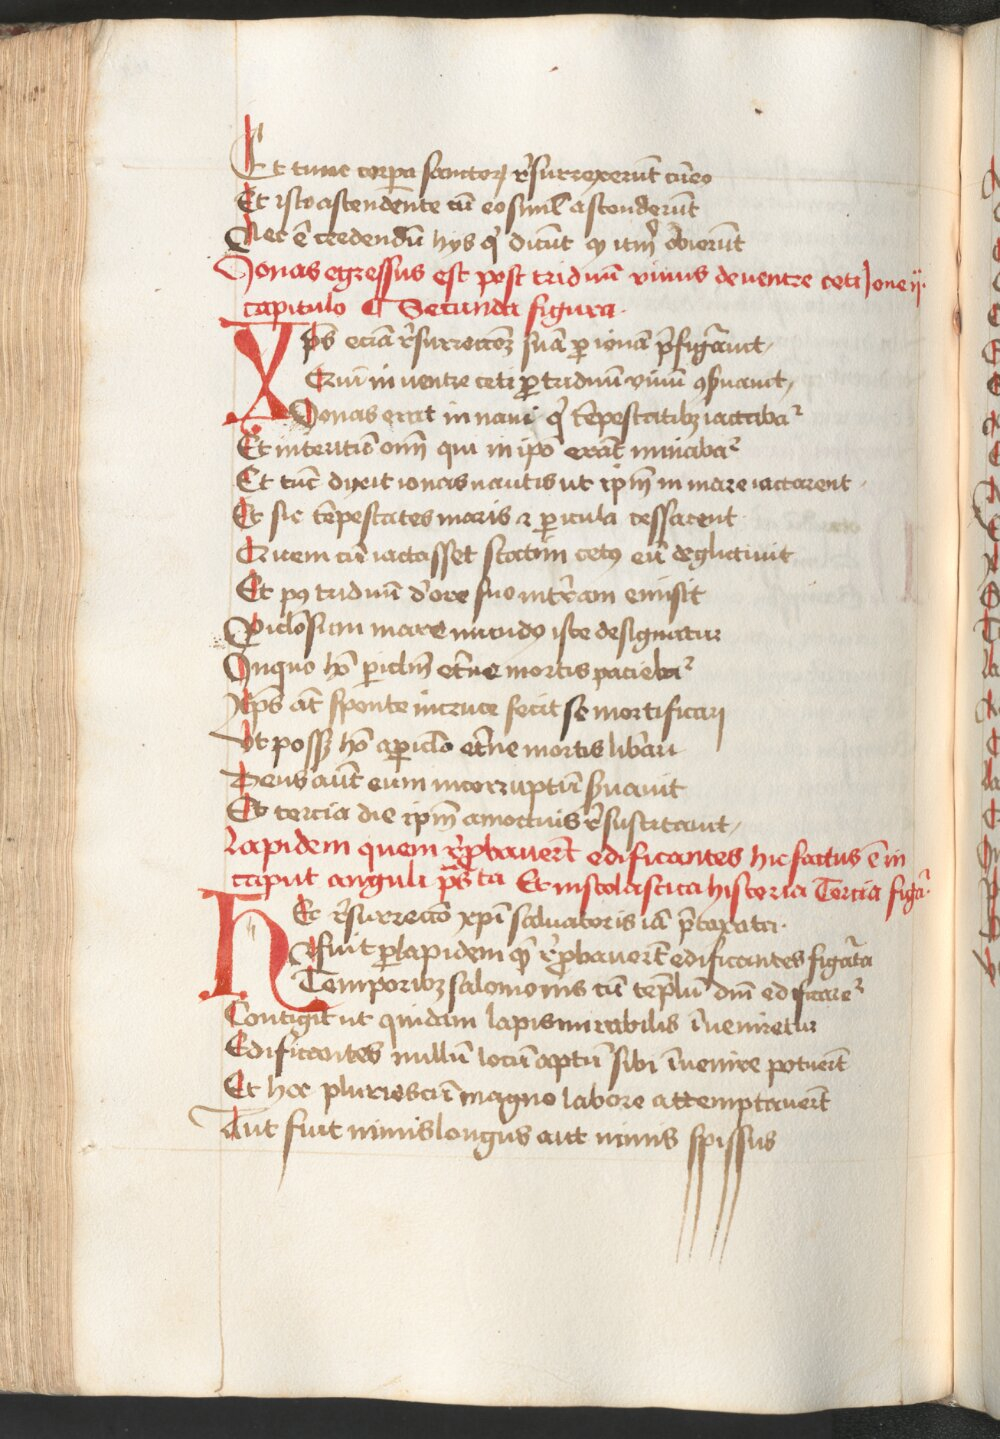 Et tunc corpa sanctoꝝ r̄surrexerūt cū eo
Et isto ascendente cū eo simul ascenderūt
Nec ē credendū hys qͥ dicūt ꝙ itm̄ obierūt
Jonas egressus est post triduū viuus de uentre ceti Jone ij.
capitulo ¶ Secunda figura.
Xp̄s eciā r̄surrectōꝫ suā ꝑ ionā p̄figurauit,
Quē in uentre ceti ꝑ triduū viuū ꝯẜuauit,
Jonas erat in naui qͥ tēpestatibꝫ iactabaᵗ
Et interitū om̄ qui in ip̄o erāt minabaᵗ
Et tūc dixit ionas nautis ut ip̄m in mare iactarent
Et sic tēpestates maris ⁊ ꝑicula cessarent
Quem cū iactasset statim cetꝰ eū deglutiuit
Et pꝰ triduū d'ore suo in t̄ram emisit
Piclosum mare mūdꝰ iste designatur
In quo hō ꝑiclm̄ et̄ne mortis paciebaᵗ
Xp̄s āt sponte in cruce fecit se mortificari
Vt possꝫ hō a ꝑiclo et̄ne mortis lib̄ari
Deus aūt eum incorruptū ẜuauit
Et tercia die ip̄m a mortuis r̄suscitauit,
Lapidem quem r̄ꝓbauer̄t edificantes hic factus ē in
caput anguli ps̄ta Et in scolastica historia Tercia figᵃ.
Hec r̄surrectō xp̄i saluatoris iā p̄taxata.
Fuit ꝑ lapidem qͫ r̄ꝓbauer̄t edificantes figurata
Temporibꝫ salomonis cū tēplū dm̄ edificareᵗ
Contigit ut quidam lapis mirabilis īueniretur
Edificantes nullū locū aptū sibi īuenire potuer̄t
Et hoc pluries cū magno labore attemptauer̄t
Aut fuit nimis longus aut nimis spissus